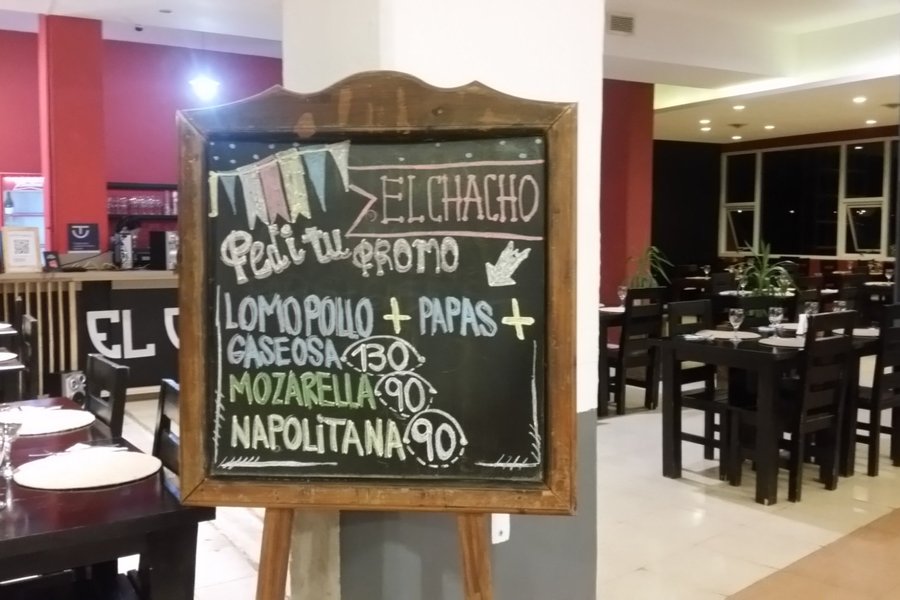 EL CHACHO
Pedi tu PROMO
LOMO POLLO + PAPAS +
GASEOSA 130
MOZARELLA 90
NAPOLITANA 90
EL